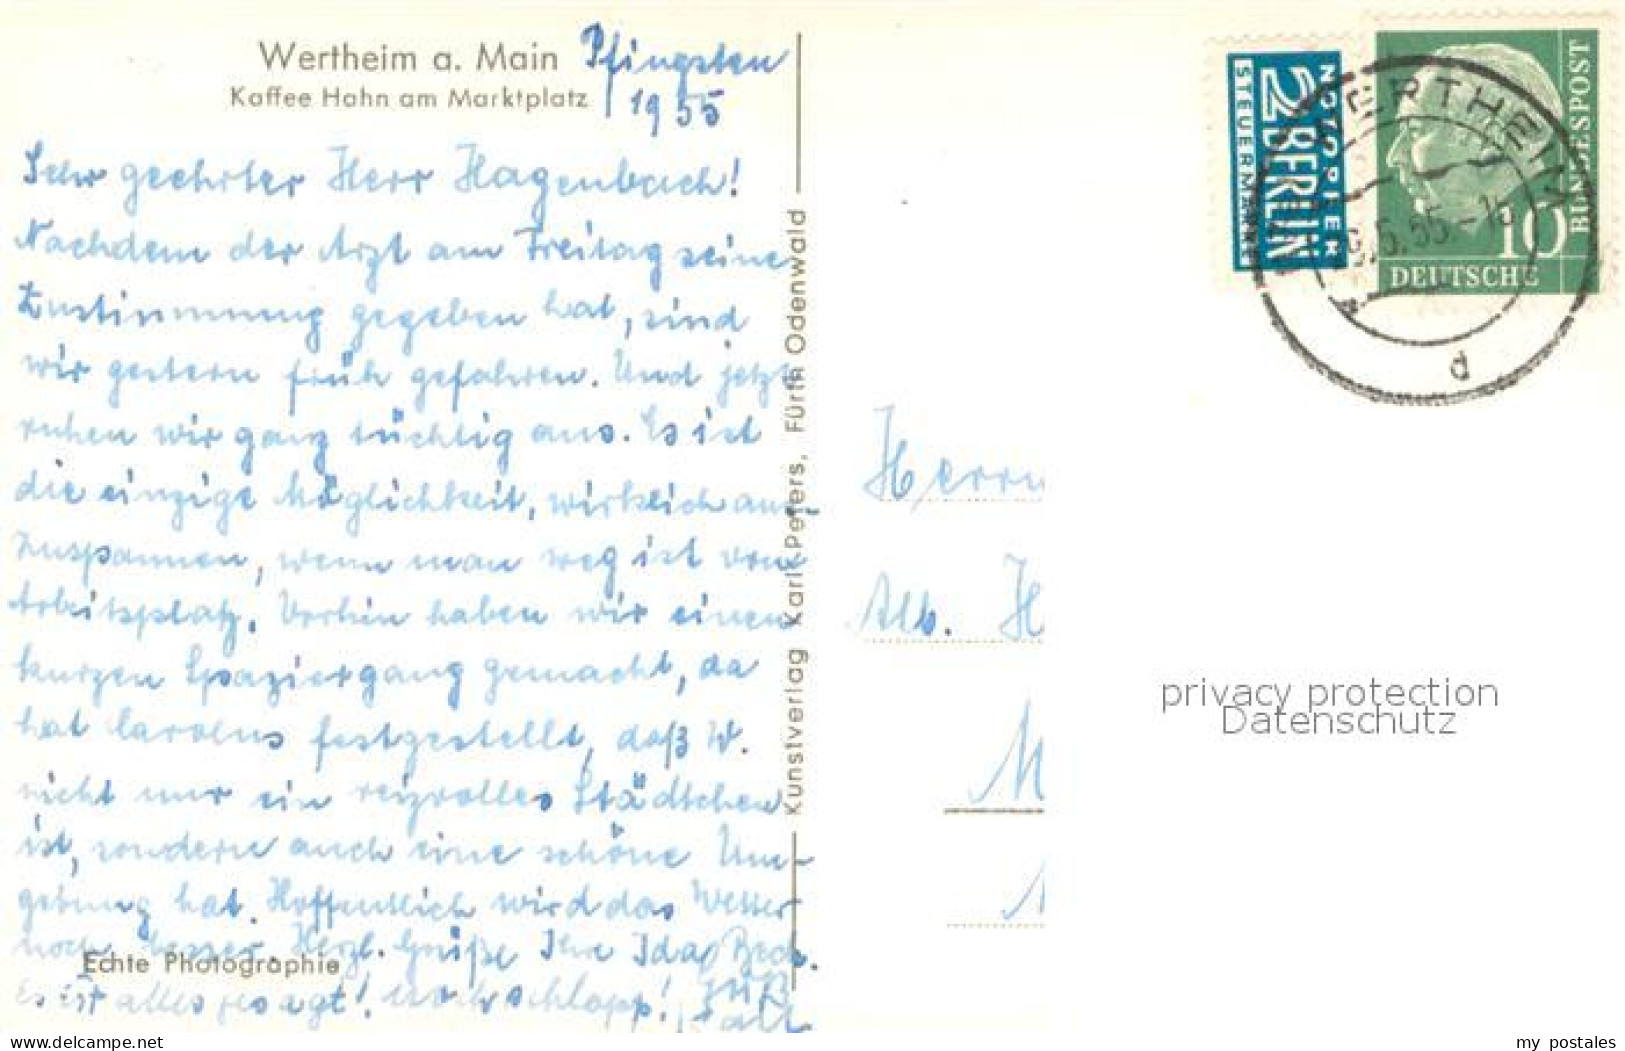 Wertheim a. Main
Kaffee Hahn am Marktplatz
Pfingsten
1955
Sehr geehrter Herr Hagenbach!
Nachdem der Arzt am Freitag seine
Zustimmung gegeben hat, sind
wir gestern früh gefahren. Und jetzt
ruhen wir ganz tüchtig aus. Es ist
die einzige Möglichkeit, wirklich aus-
zuspannen, wenn man weg ist vom
Arbeitsplatz. Vorhin haben wir einen
kurzen Spaziergang gemacht, da
hat Carolus festgestellt, daß W.
nicht nur ein reizvolles Städtchen
ist, sondern auch eine schöne Um-
gebung hat. Hoffentlich wird das Wetter
noch besser. Herzl. Grüße Ihre Ida
Echte Photographie
Es ist alles gesagt! noch schlapp!
Kunstverlag Karl Peters, Fürth Odenwald
NOTOPFER
2 BERLIN
STEUERMARKE
WERTHEIM
.5.55.-15
d
10
DEUTSCHE
BUNDESPOST
Herrn
Alb. H
M
privacy protection
Datenschutz
www.delcampe.net
my_postales